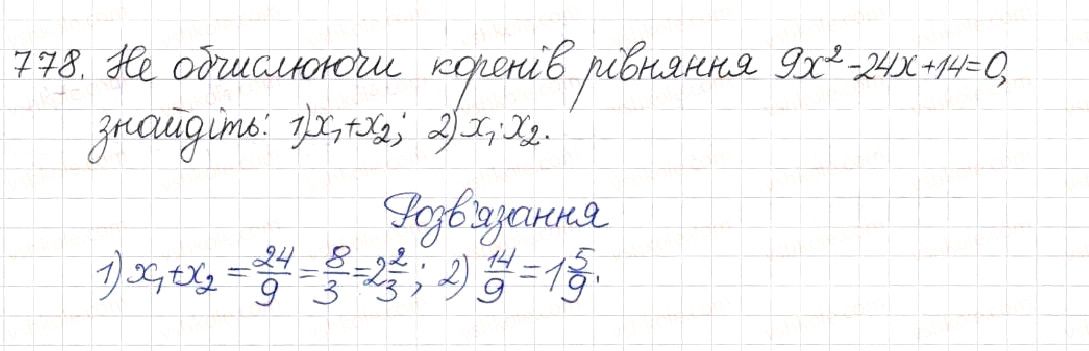 778. Не обчислюючи коренів рівняння 9x²-24x+14=0,
знайдіть: 1) x₁+x₂; 2) x₁·x₂.
Розв'язання
1) x₁+x₂ = 24/9 = 8/3 = 2 2/3; 2) 14/9 = 1 5/9.